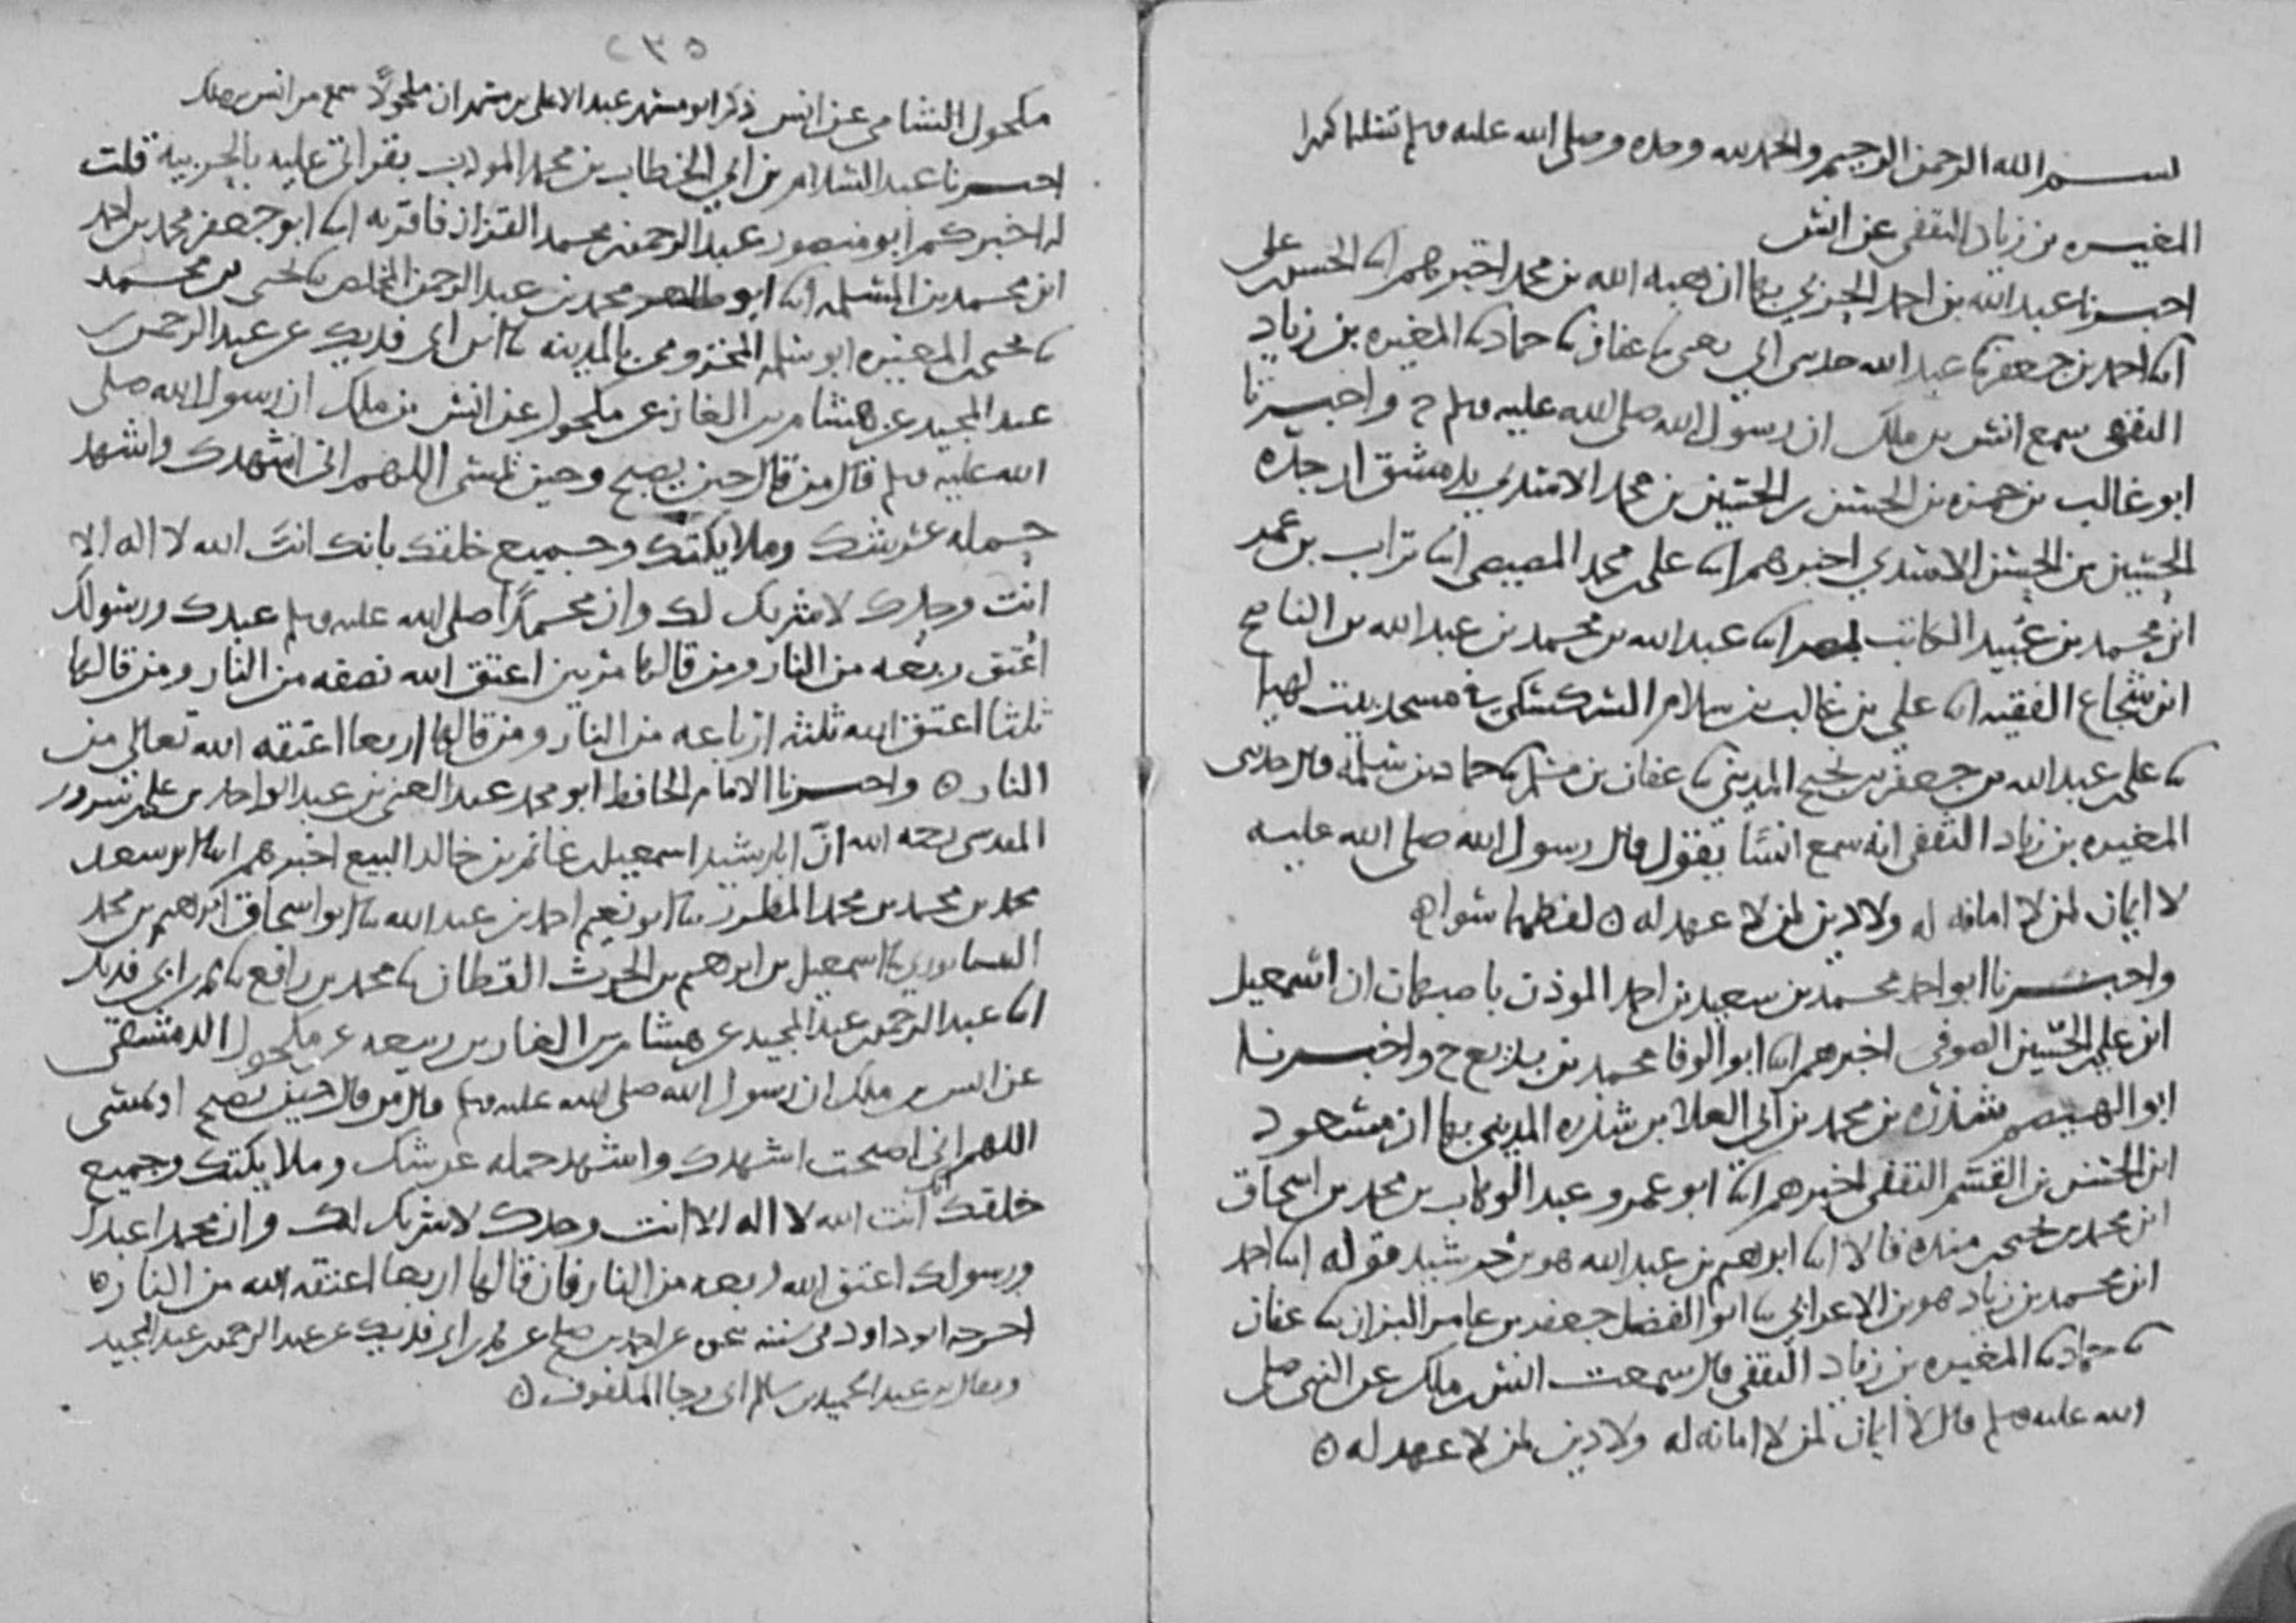 بسم الله الرحمن الرحيم والحمد لله وحده وصلى الله عليه وسلم تسليما كثيرا
المغيره بن زياد الثقفي عن انس
اخبرنا عبد الله بن احمد الحربي بها ان هبه الله بن محمد اخبرهم ابنا الحسن بن علي
ابنا احمد بن جعفر ثنا عبد الله حدثني ابي يعني ثنا عفان ثنا حماد ثنا المغيره بن زياد
الثقفي سمع انس بن ملك ان رسول الله صلى الله عليه وسلم ح واخبرنا
ابو غالب بن حمزه بن الحسين بن الحسين بن محمد الاسدي بدمشق ان جده
الحسين بن الحسن الاسدي اخبرهم ابنا علي بن محمد المصيصي ابنا تراب بن عمر
ابن محمد بن عبيد الكاتب بمصر ابنا عبد الله بن محمد بن عبد الله بن الناصح
ابن شجاع الفقيه ابنا علي بن غالب بن سلام السكسكي في مسجد بيت لهيا
ثنا علي بن عبد الله بن جعفر بن نجيح المديني ثنا عفان بن مسلم ثنا حماد بن سلمة قال حدثني
المغيره بن زياد الثقفي انه سمع انسا يقول قال رسول الله صلى الله عليه
لا ايمان لمن لا امانه له ولا دين لمن لا عهد له ٥ لفظهما سواء
واخبرنا ابو احمد محمد بن سعيد بن احمد الموذن باصبهان ان اسمعيل
ابن علي بن الحسين الصوفي اخبرهم ابنا ابو الوفا محمد بن بديع ح واخبرنا
ابو الهيصم شذره بن محمد بن ابي العلا بن شذره المديني بها ان مسعود
ابن الحسن بن القسم الثقفي اخبرهم ابنا ابو عمرو عبد الوهاب بن محمد بن اسحاق
ابن محمد بن يحيى منده قالا ابنا ابراهيم بن عبد الله هو بن خرشيد قوله ابنا احمد
ابن محمد بن زياد هو بن الاعرابي ثنا ابو الفضل جعفر بن عامر البزاز ثنا عفان
ثنا حماد ثنا المغيره بن زياد الثقفي قال سمعت انس بن ملك عن النبي صلى
الله عليه وسلم قال لا ايمان لمن لا امانه له ولا دين لمن لا عهد له ٥
٢٣٥
مكحول الشامي عن انس ذكر ابو مسهر عبد الاعلى بن مسهر ان مكحولا سمع من انس بن ملك
اخبرنا عبد السلام بن ابي الخطاب بن محمد المودب بقراتي عليه بالحربيه قلت
له اخبركم ابو منصور عبد الرحمن بن محمد القزاز فاقر به ابنا ابو جعفر محمد بن احمد
ابن محمد بن المسلمه ابنا ابو طاهر محمد بن عبد الرحمن المخلص ثنا يحيى بن محمد
ثنا يحيى بن المغيره ابو سلمه المخزومي بالمدينه ثنا ابن ابي فديك عن عبد الرحمن بن
عبد المجيد عن هشام بن الغاز عن مكحول عن انس بن ملك ان رسول الله صلى
الله عليه وسلم قال من قال حين يصبح وحين يمسي اللهم اني اشهدك واشهد
حمله عرشك وملايكتك وجميع خلقك بانك انت الله لا اله الا
انت وحدك لا شريك لك وان محمدا صلى الله عليه وسلم عبدك ورسولك
اعتق ربعه من النار ومن قالها مرتين اعتق الله نصفه من النار ومن قالها
ثلثا اعتق الله ثلثه ارباعه من النار ومن قالها اربعا اعتقه الله تعالى من
النار ٥ واخبرنا الامام الحافظ ابو محمد عبد الغني بن عبد الواحد بن علي بن سرور
المقدسي رحمه الله ان ابا رشيد اسمعيل بن غانم بن خالد البيع اخبرهم ابنا ابو سعد
محمد بن محمد بن محمد المطرز ثنا ابو نعيم احمد بن عبد الله ثنا ابو اسحاق ابراهيم بن محمد
النيسابوري ثنا اسمعيل بن ابراهيم بن الحرث القطان ثنا محمد بن رافع ثنا ابن ابي فديك
ابنا عبد الرحمن بن عبد المجيد عن هشام بن الغاز بن ربيعه عن مكحول الدمشقي
عن انس بن ملك ان رسول الله صلى الله عليه وسلم قال من قال حين يصبح او يمسي
اللهم اني اصبحت اشهدك واشهد حمله عرشك وملايكتك وجميع
خلقك انك انت الله لا اله الا انت وحدك لا شريك لك وان محمدا عبدك
ورسولك اعتق الله ربعه من النار فان قالها اربعا اعتقه الله من النار ٥
اخرجه ابو داود في سننه عن احمد بن صالح عن ابن ابي فديك عن عبد الرحمن بن عبد المجيد
ويقال بن عبد الحميد بن سالم ابي رجا المكفوف ٥